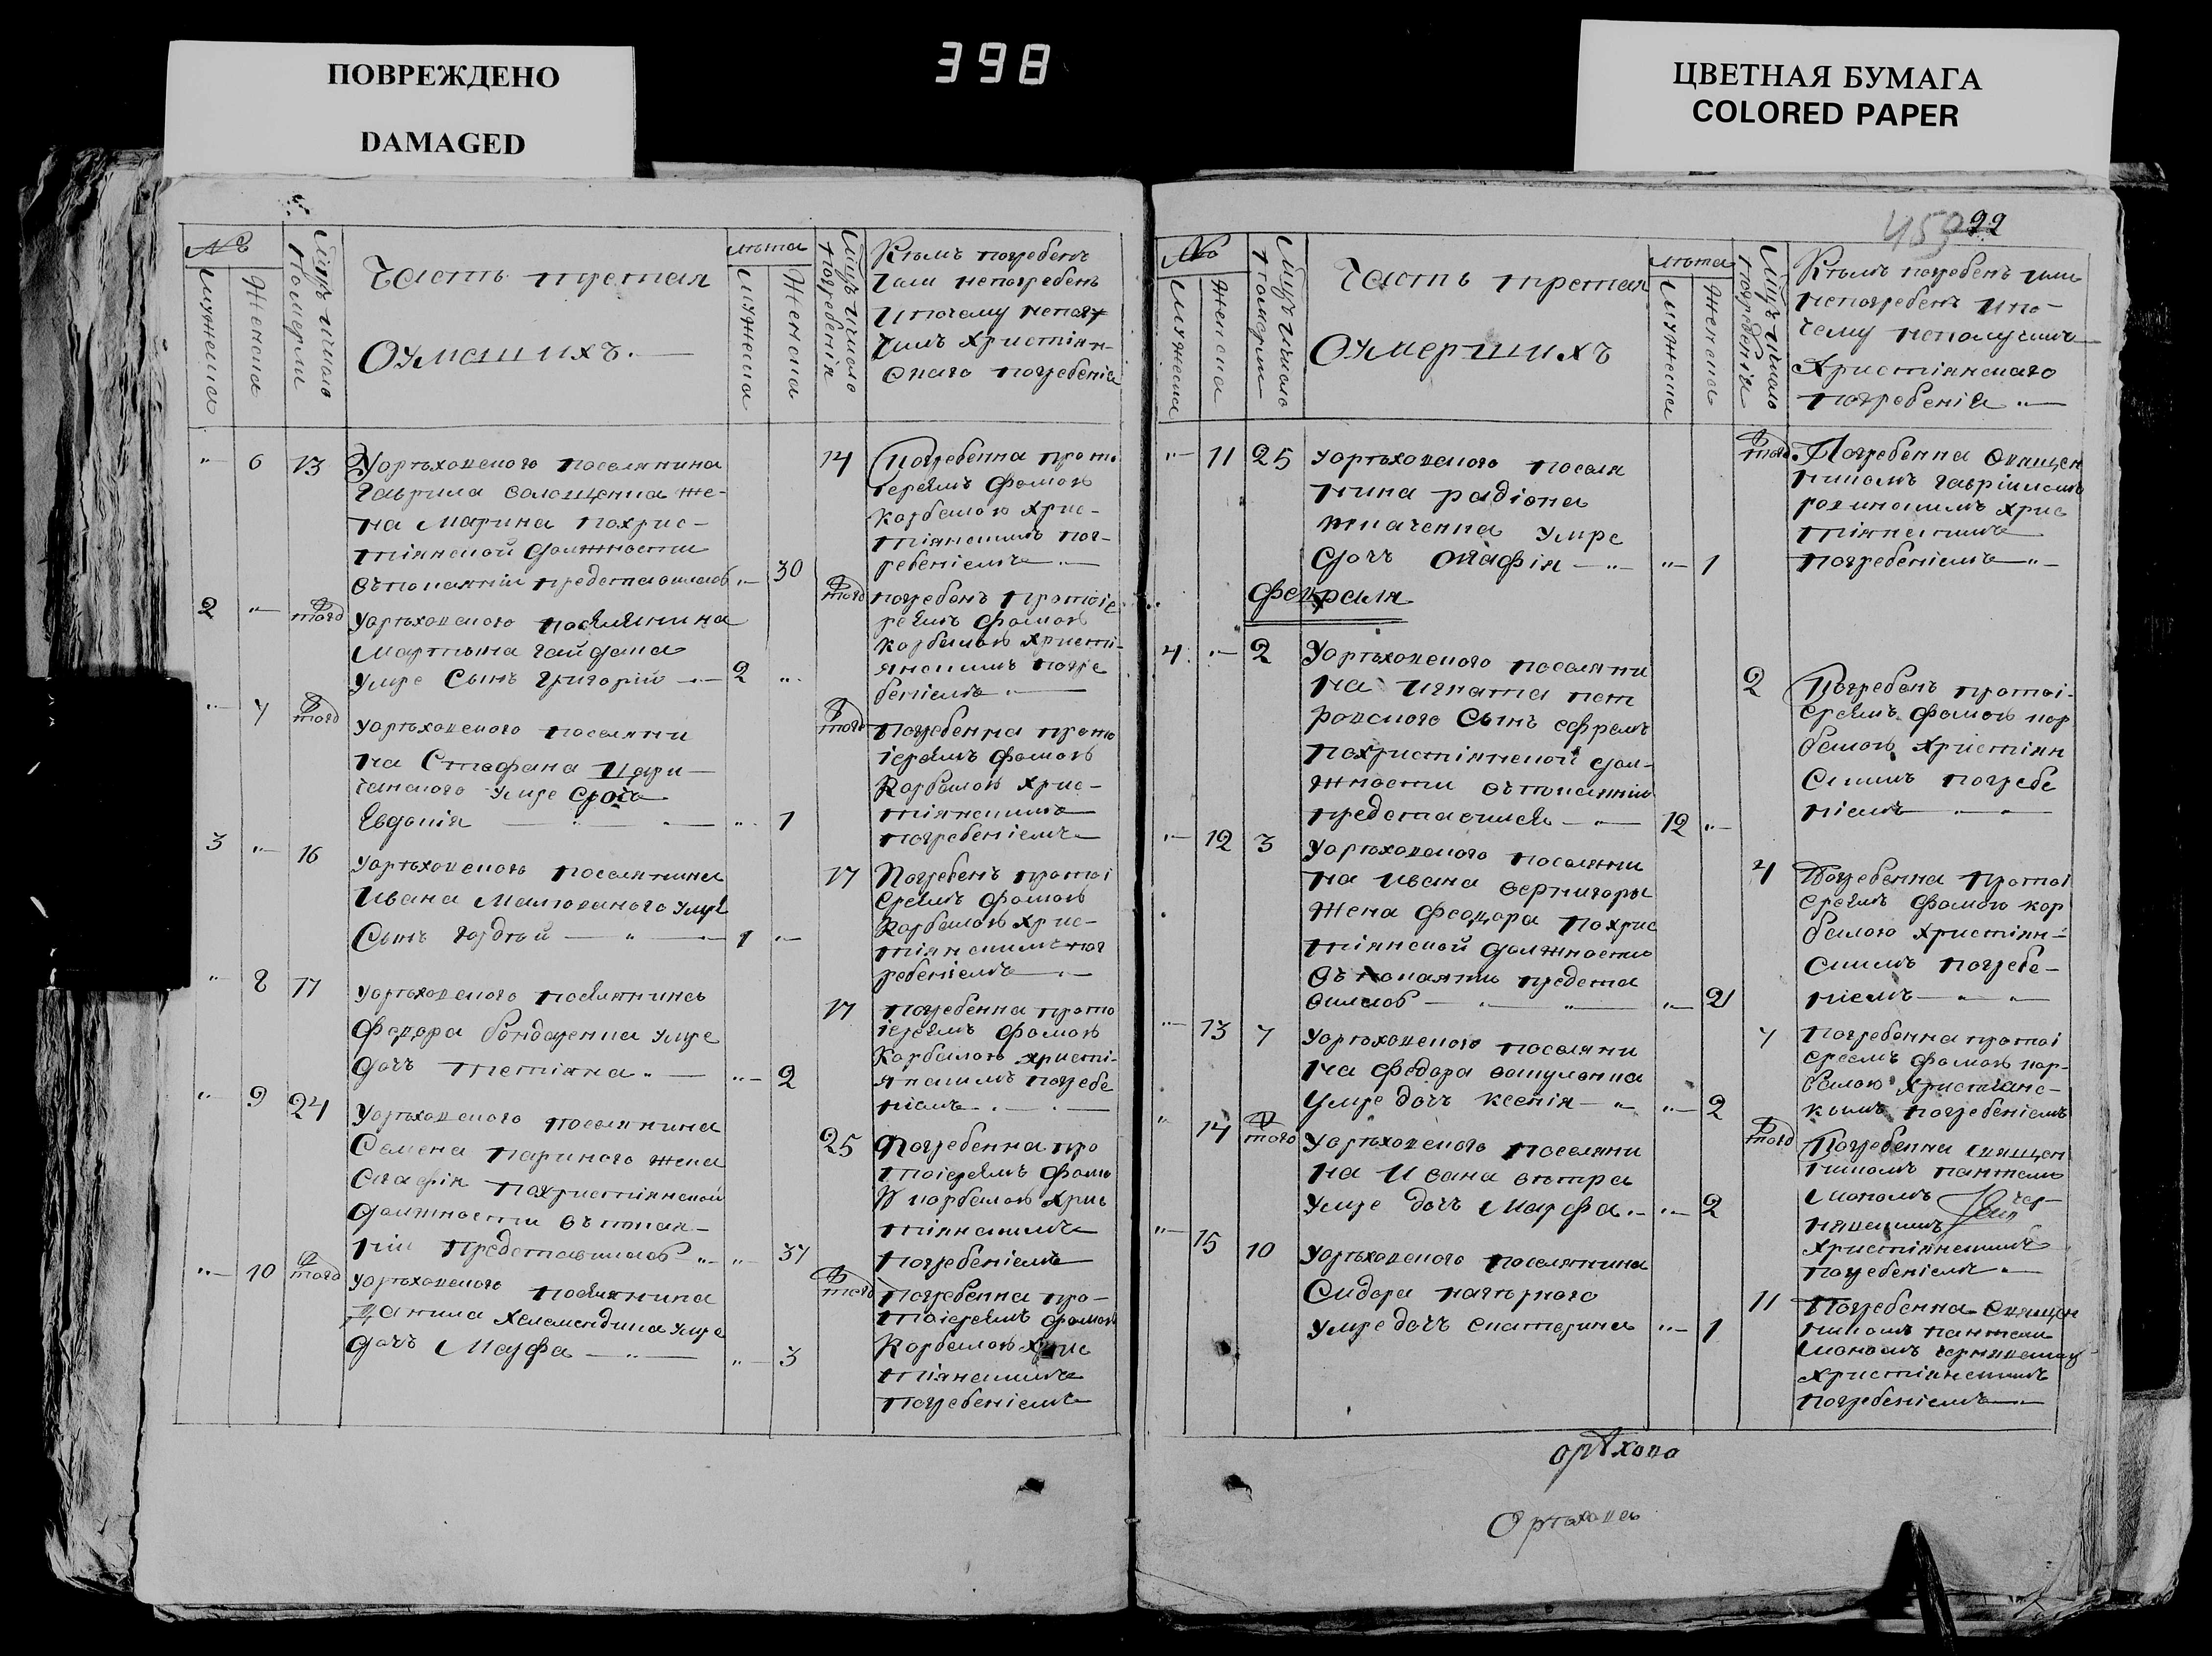 ПОВРЕЖДЕНО
DAMAGED
398
ЦВЕТНАЯ БУМАГА
COLORED PAPER
459 22
№
Мужеска
Женска
Мѣсяцъ и число померли
Часть третая
Оумешихъ.
лѣта
Мужеска
Женска
Мѣсяцъ и число погребенія
Кѣмъ погребенъ
или непогребенъ
и почему неполу
чилъ Христіян
скаго погребенія
6 13
Уорѣховского поселянина
Гаврила Солощенка же-
на Марина похрис-
тіянской должности
въпокаяніи представилась 30
14
Погребенна прото
іереямъ Фомою
Корбемою Хрис-
тіянскимъ пог-
ребеніемъ
2 того
Уорѣховского поселянина
Мартына Гайдака
умре Сынъ Григорій 2
того
погребенъ протоіе
реямъ Фомою
Корбемою Христі-
янскимъ погре
беніемъ
7 того
Уорѣховского поселяни
на Стефана Цари
ченского умре дочь
Евдокія 1
того
погребенна прото
іереямъ Фомою
Корбемою Хрис-
тіянскимъ
погребеніемъ
3 16
Уорѣховского поселянина
Ивана Малюваного умре
Сынъ Гордѣй 1
17
Погребенъ протоі
ереямъ Фомою
Корбемою Хрис-
тіянскимъ пог
ребеніемъ
8 17
Уорѣховского поселянина
Федора Бондаренка умре
дочъ Тетіяна 2
17
погребенна прото
іереямъ Фомою
Корбемою христі-
янскимъ погребе
ніемъ
9 24
Уорѣховского поселянина
Семена париного жена
Агафія похристіянской
должности въ покая-
ніи представилась 37
25
погребенна про
тоіереямъ Фомою
Корбемою Хрис
тіянскимъ
погребеніемъ
10 того
Уорѣховского поселянина
Данила Хелемендика умре
дочъ Марфа 3
того
погребенна про-
тоіереямъ Фомою
Корбемою Хрис
тіянскимъ
погребеніемъ
№
Мужеска
Женска
Мѣсяцъ и число померли
Часть третая
Оумершихъ
лѣта
Мужеска
Женска
Мѣсяцъ и число погребенія
Кѣмъ погребенъ или
непогребенъ и по-
чему неполучилъ
Христіянскаго
погребенія
11 25
Уорѣховского поселя
нина радіона
ткаченка умре
дочъ Агафія 1
того
Погребенна Священ
никомъ Гавріиломъ
Хрис
тіянскимъ
погребеніемъ
февраля
4 2
Уорѣховского поселяни
на Игната пет
ровского Сынъ ефремъ
похристіянской дол-
жности въпокаяніи
представился 12
2
Погребенъ протоі-
ереямъ Фомою кор
бемою Христіян
Скимъ погребе
ніемъ
12 3
Уорѣховского поселяни
на ивана вернигоры
жена Феодора похрис
тіянской должности
въ покаяніи предста
вилась 21
4
Погребенна протоі
ереямъ Фомою кор
бемою христіян-
Скимъ погребе-
ніемъ
13 7
Уорѣховского поселяни
на федора вакуленка
умре дочъ ксенія 2
7
погребенна протоі
ереемъ Фомою кор-
бемою Христіанс-
кимъ погребеніемъ
14 того
Уорѣховского поселяни
на Ивана вѣтра
умре дочъ Марфа 2
того
Погребенна священ
никомъ пантеле
имономъ чер-
нявскимъ
христіянскимъ
погребеніемъ
15 10
Уорѣховского поселянина
Сидора нагѣрного
умре дочъ екатерина 1
11
Погребенна Священ
никомъ пантели
мономъ чернявским
христіянскимъ
погребеніемъ
орѣхово
Орѣховъ